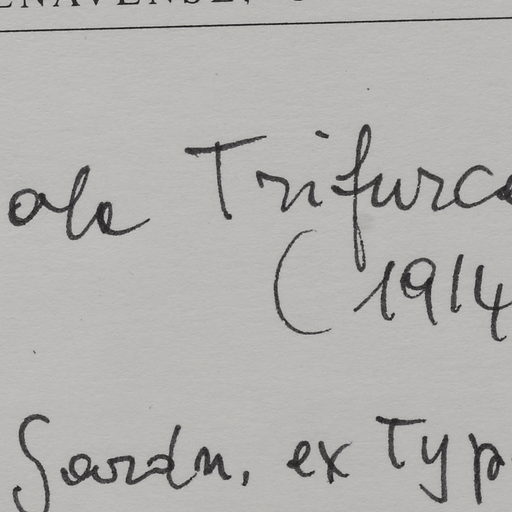 ENAVENSE,
ola Trifurca
(1914
Gardn. ex Typ